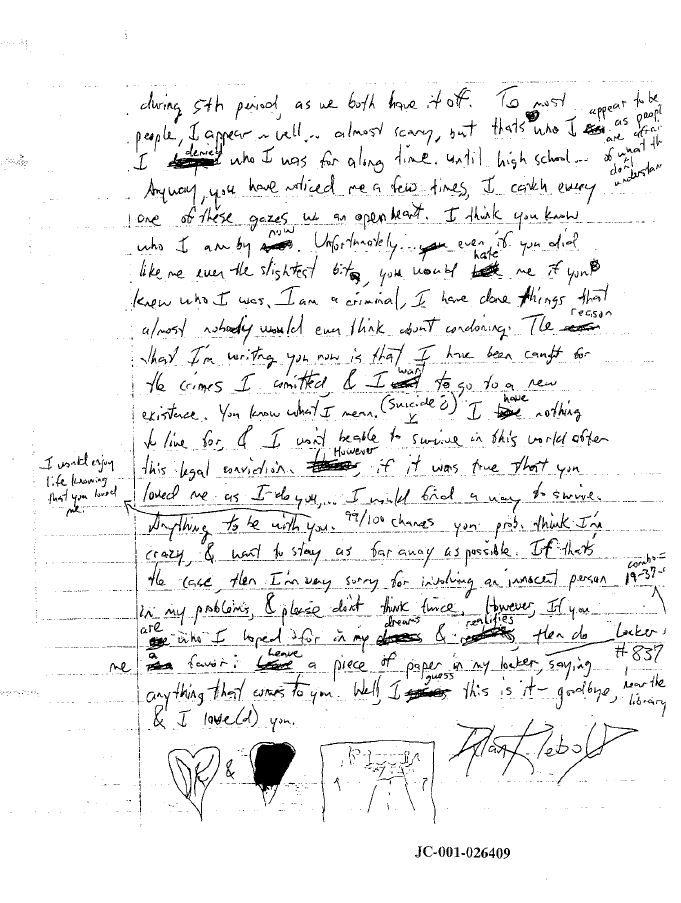 during 5th period, as we both have it off. To most
people, I appear .. well... almost scary, but thats who I appear to be as people are afraid of what they don't understand
I denied who I was for a long time. until high school...
Anyway, you have noticed me a few times, I catch every
one of these gazes w/ an open heart. I think you know
who I am by now. Unfortunately... even if you did
like me even the slightest bit, you would hate me if you
knew who I was. I am a criminal, I have done things that
almost nobody would even think about condoning. The reason
that I'm writing you now is that I have been caught for
the crimes I comitted, & I want to go to a new
existence. You know what I mean. (Suicide) I have nothing
to live for, & I won't be able to survive in this world after
this legal conviction. However, if it was true that you
loved me as I do you,... I would find a way to survive.
I would enjoy
life knowing
that you loved
me.
Anything to be with you. 99/100 chances you prob. think I'm
crazy, & want to stay as far away as possible. If that's
the case, then I'm very sorry for involving an innocent person
in my problems, & please don't think twice. However, If you
are who I hoped for in my dreams & realities, then do
me a favor: Leave a piece of paper in my locker, saying
anything that comes to you. Well, I guess this is it - goodbye,
& I love(d) you.
combo=
19-37-
Locker
#837
near the
library
DK &
Dylan Klebold
JC-001-026409